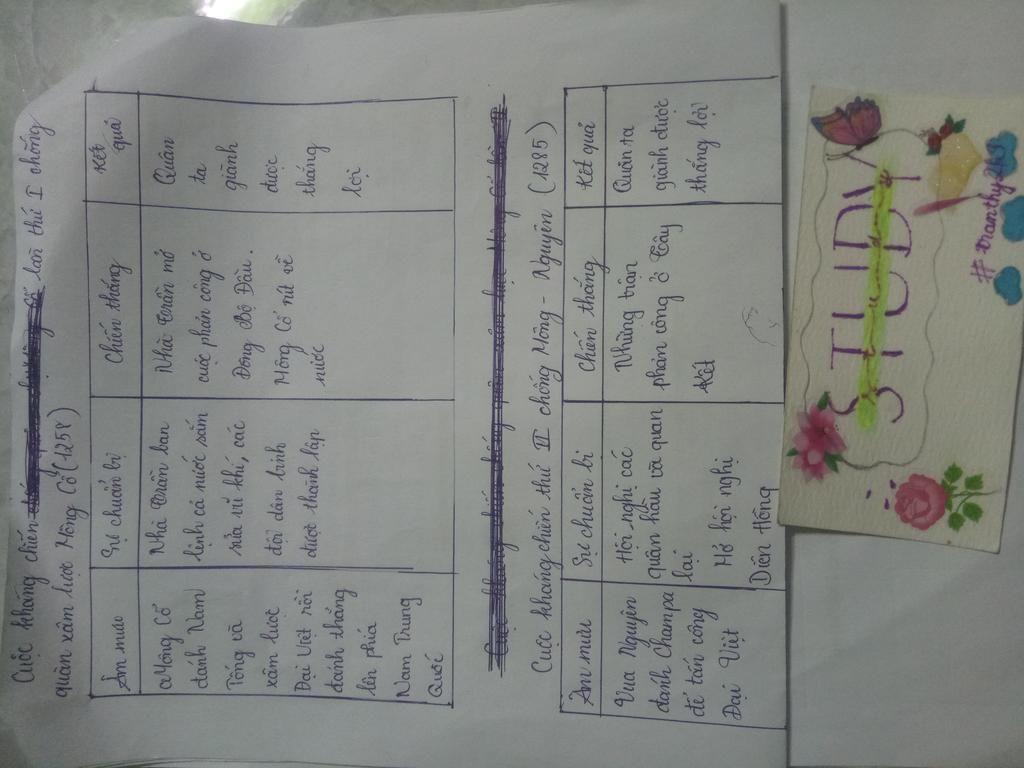 Cuộc kháng chiến lần thứ I chống
quân xâm lược Mông Cổ (1258)
Âm mưu
Sự chuẩn bị
Chiến thắng
Kết quả
Mông Cổ
đánh Nam
Tống và
xâm lược
Đại Việt rồi
đánh thẳng
lên phía
Nam Trung
Quốc
Nhà Trần ban
lệnh cả nước sắm
sửa vũ khí, các
đội dân binh
được thành lập
Nhà Trần mở
cuộc phản công ở
Đông Bộ Đầu.
Mông Cổ rút về
nước
Quân
ta
giành
được
thắng
lợi
Cuộc kháng chiến thứ II chống Mông - Nguyên (1285)
Âm mưu
Sự chuẩn bị
Chiến thắng
Kết quả
Vua Nguyên
đánh Champa
để tấn công
Đại Việt
Hội nghị các
quân hầu và quan
lại
Mở hội nghị
Diên Hồng
Những trận
phản công ở Tây
Kết
Quân ta
giành được
thắng lợi
STUDY
Study